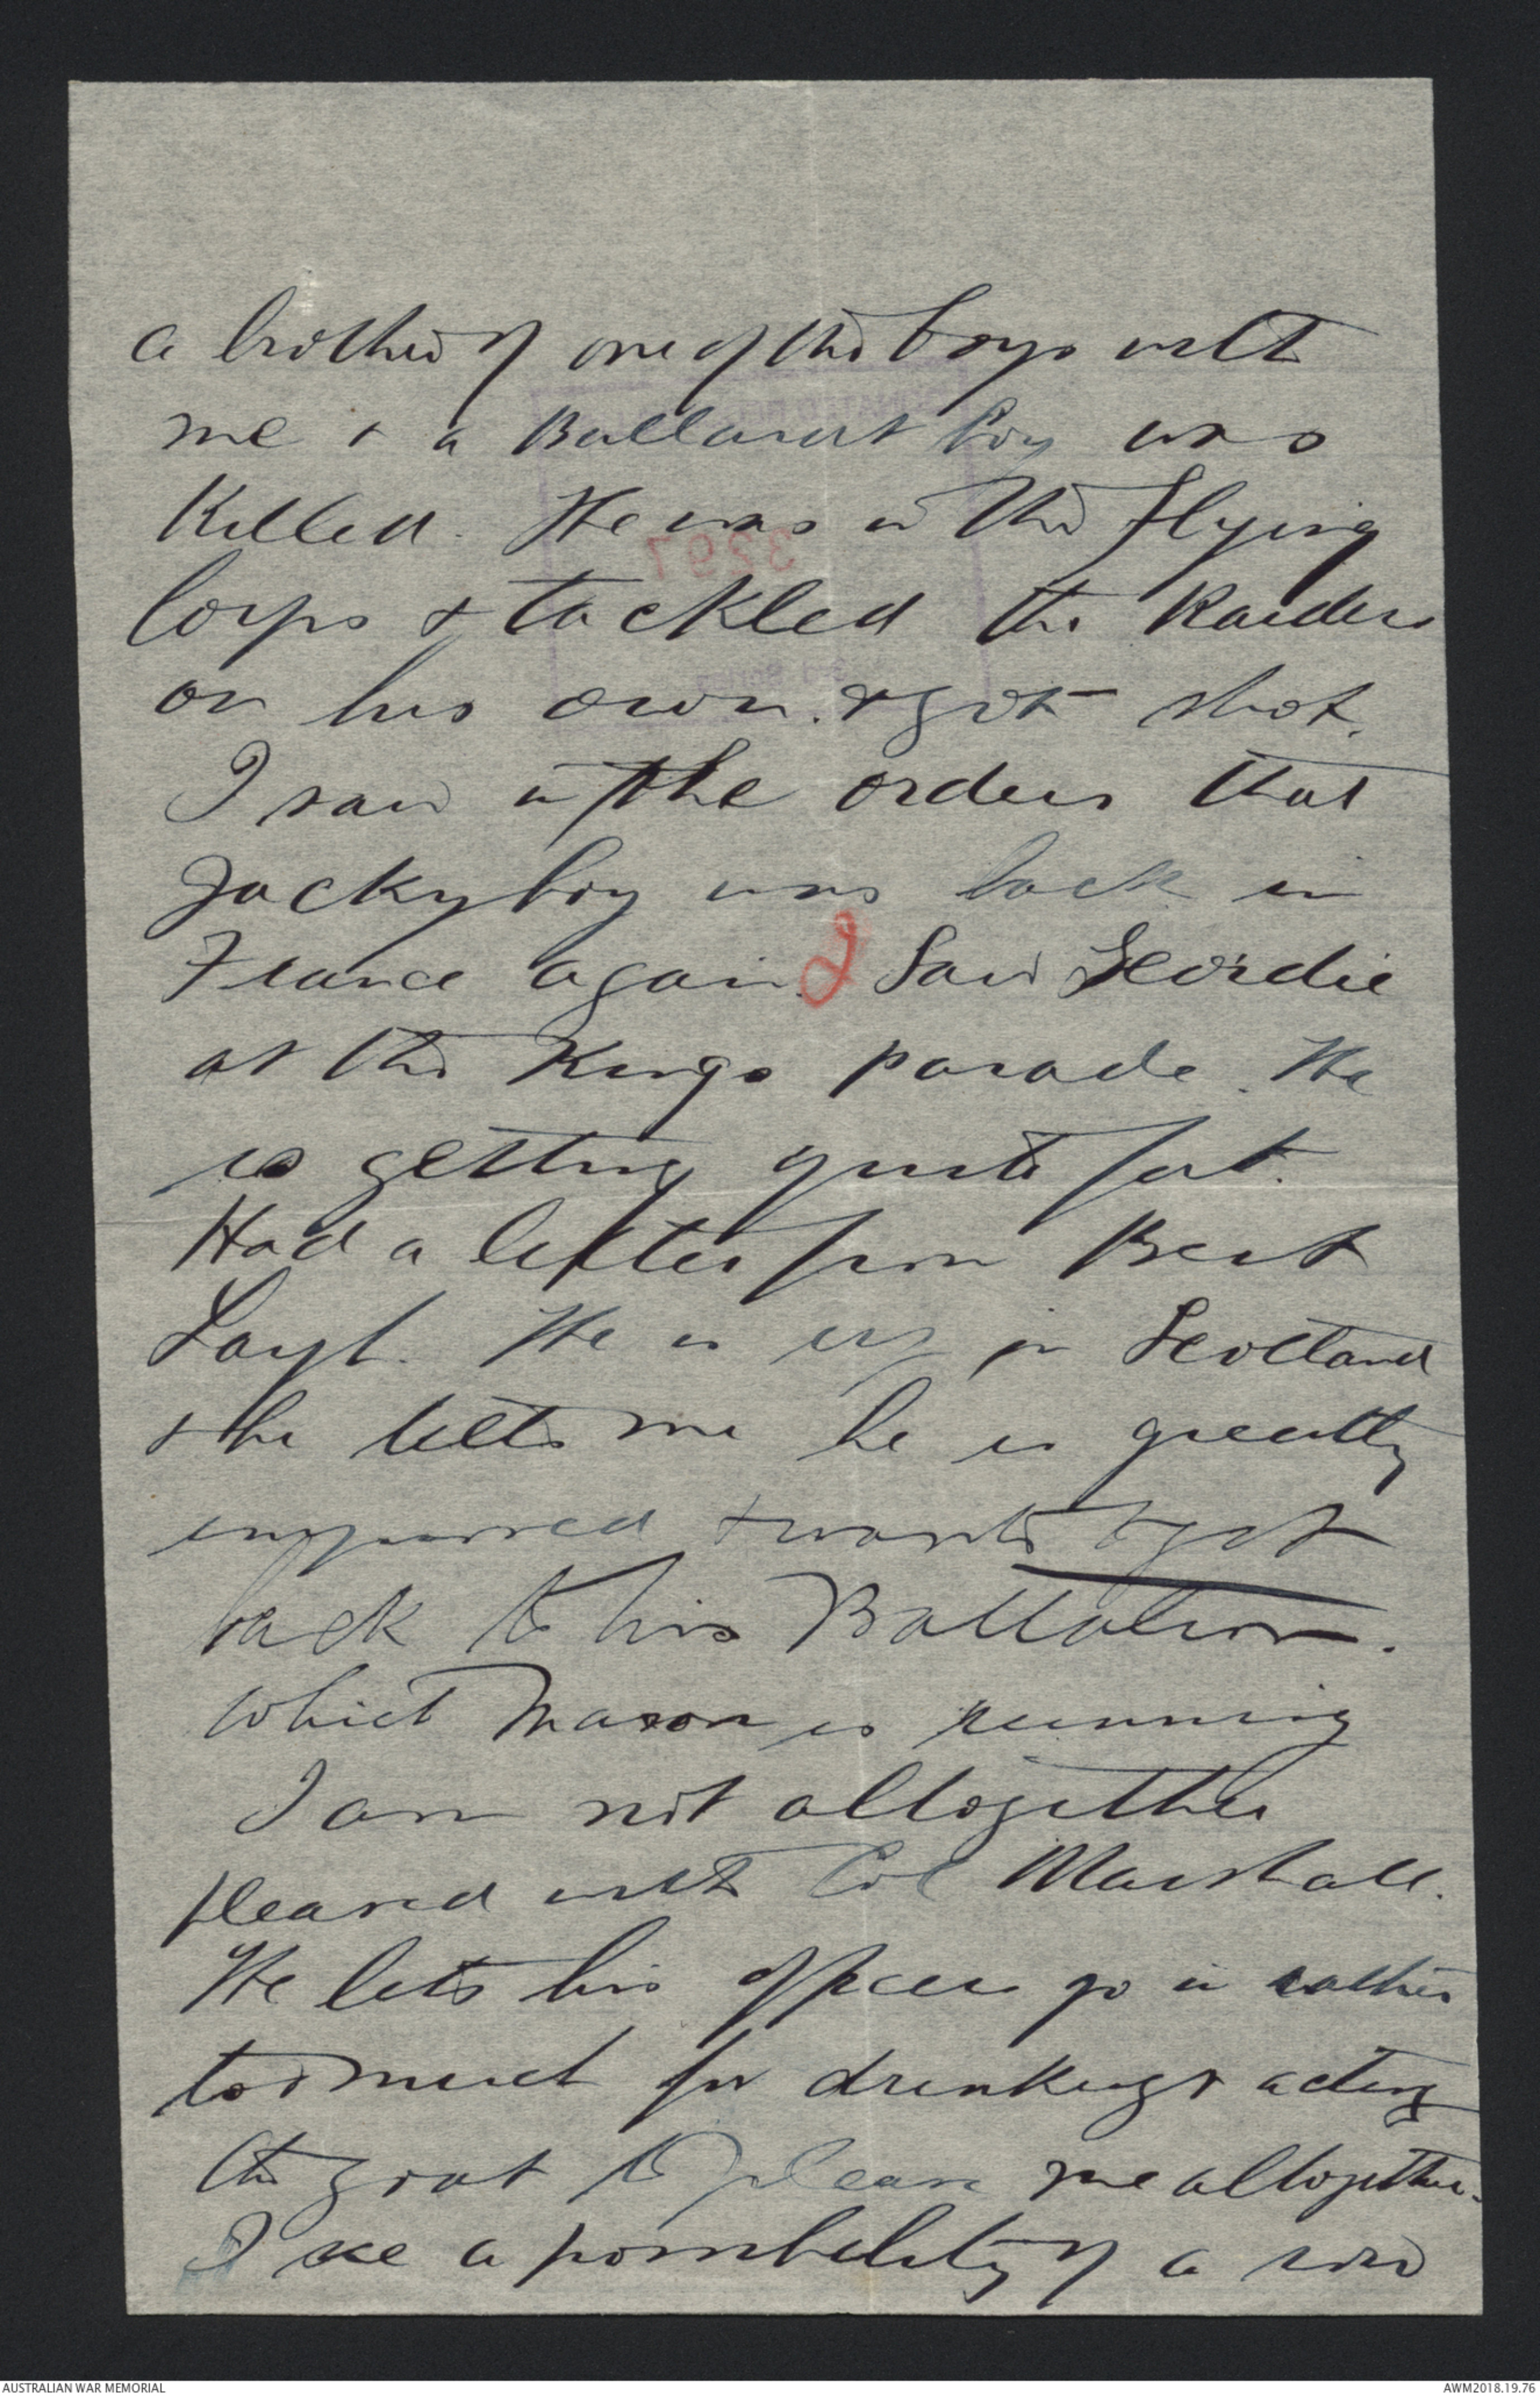 a brother of one of the boys with
me & a Ballarat boy was
killed. He was in the Flying
Corps & tackled the Raiders
on his own. & got shot.
I saw in the orders that
Jackyboy was back in
France again. Saw Geordie
at the Kings parade. He
is getting quite fat.
Had a letter from Bert
Layh. He is up in Scotland
& he tells me he is greatly
improved & wants to get
back to his Battalion.
which Mason is running
I am not altogether
pleased with Col Marshall.
He lets his officers go in rather
too much for drinking & acting
the goat to please me altogether.
I see a possibility of a row
3297
AUSTRALIAN WAR MEMORIAL
AWM2018.19.76